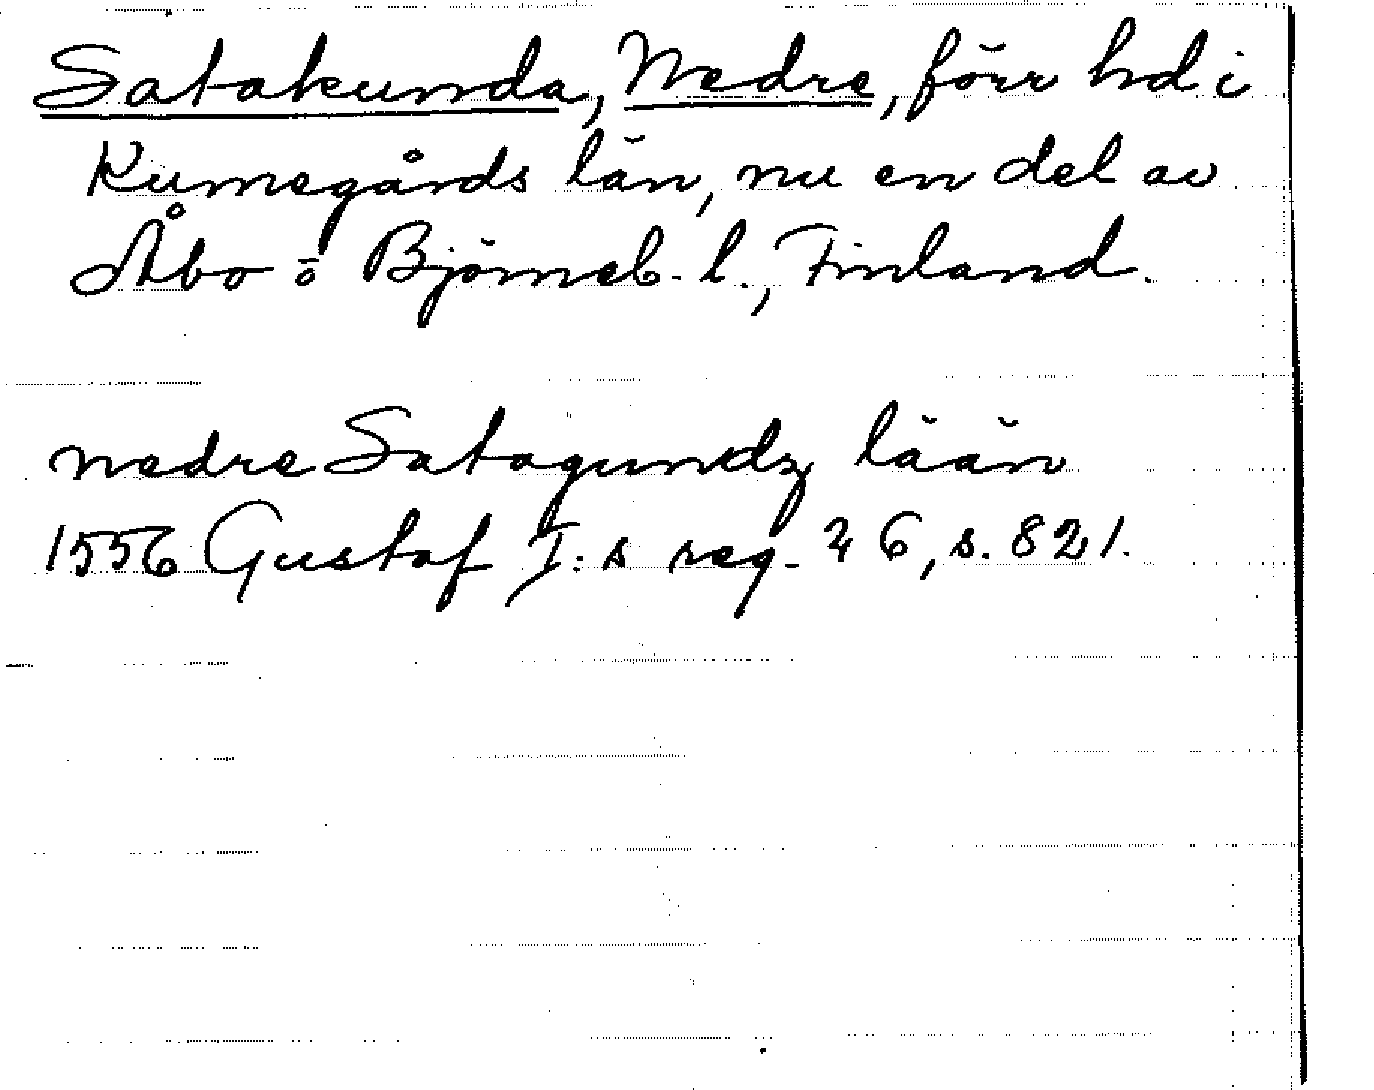 Satakunda, Nedre, förr hd i
Kumogårds län, nu en del av
Åbo o Björneb. l., Finland.
nedre Satagundz lään
1556 Gustaf I:s reg. 26, s. 821.